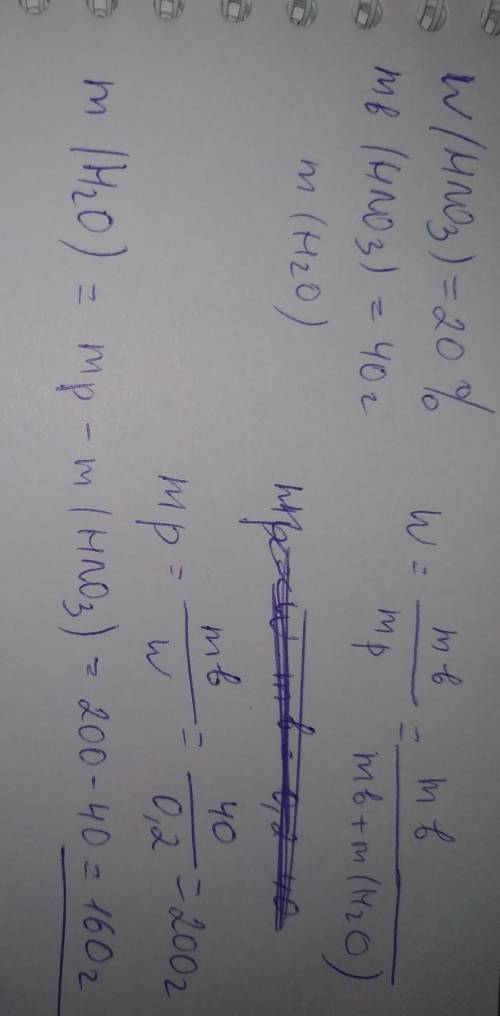 W(HNO3) = 20%
mв(HNO3) = 40г
m(H2O)
W = mв/mp = mв/(mв + m(H2O))
mp = W · mв = 0,2 · 40
mp = mв/W = 40/0,2 = 200г
m(H2O) = mp - m(HNO3) = 200 - 40 = 160г